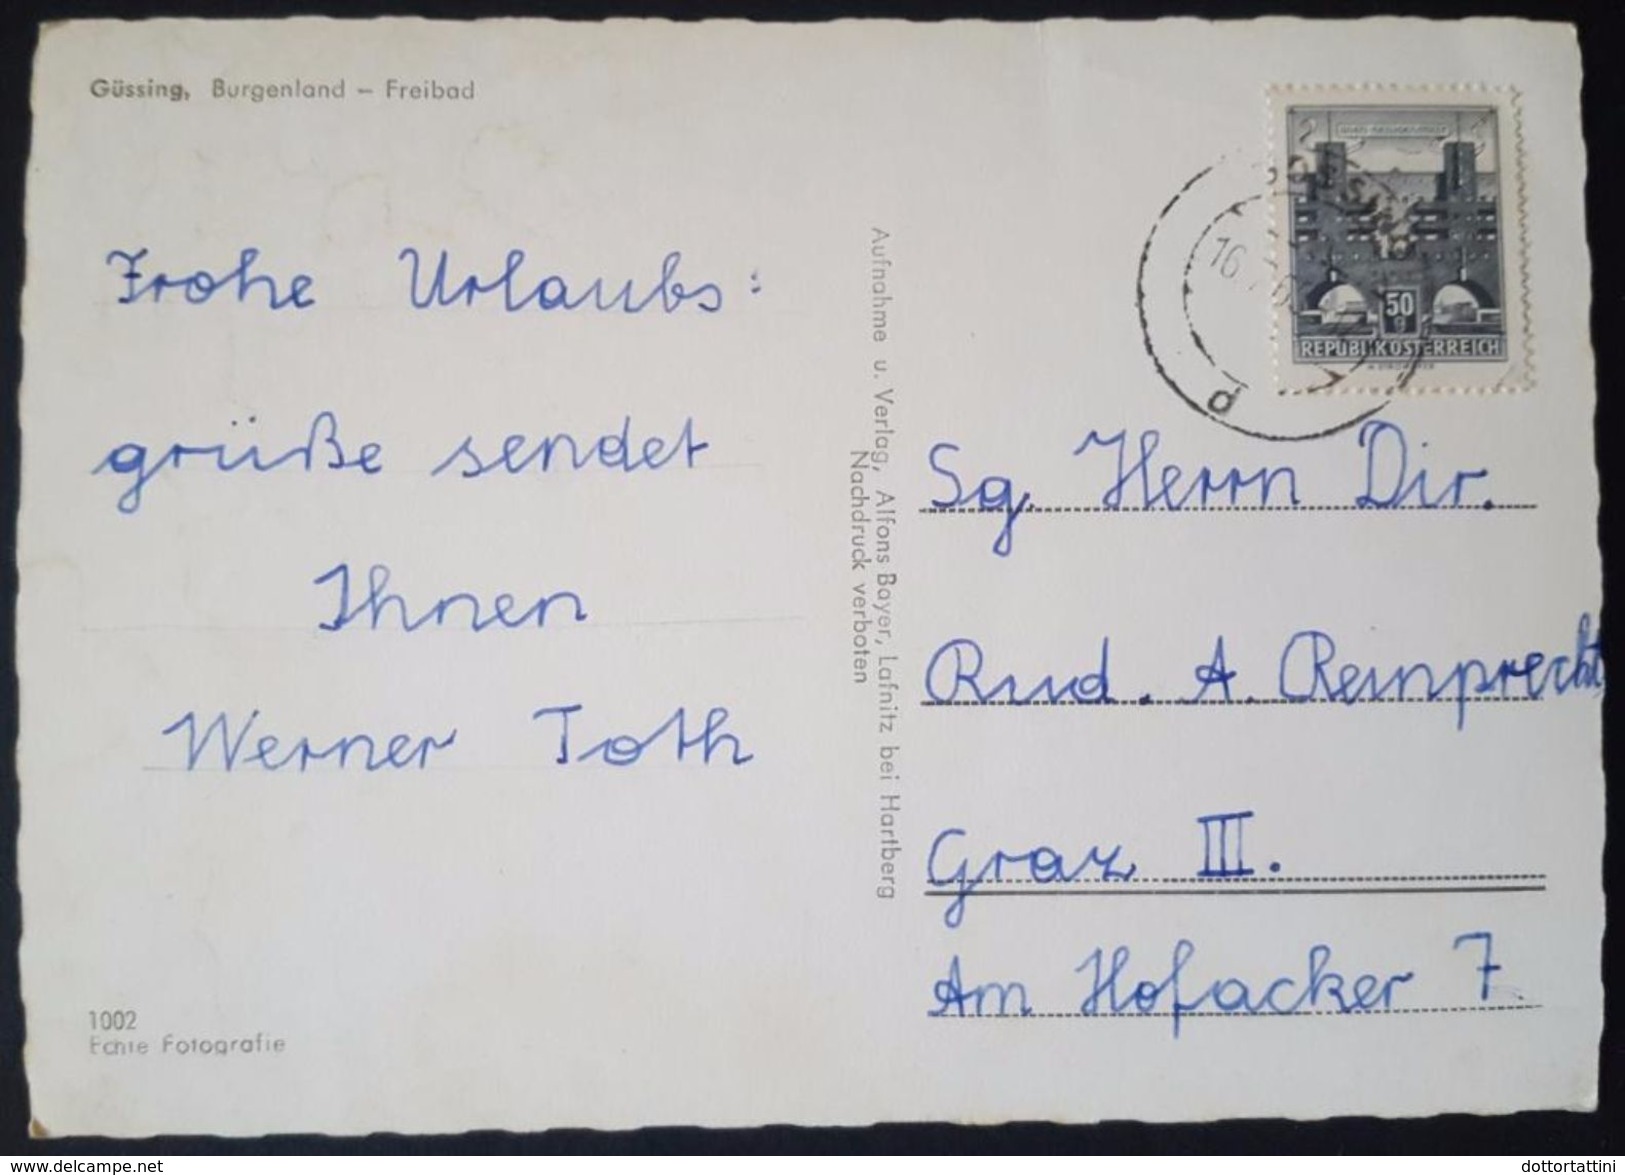 Güssing, Burgenland – Freibad
Frohe Urlaubs:
grüße sendet
Ihnen
Werner Toth
1002
Echte Fotografie
Aufnahme u. Verlag, Alfons Bayer, Lafnitz bei Hartberg
Nachdruck verboten
50 g
REPUBLIK ÖSTERREICH
16.
d
Sg. Herrn Dir.
Rud. A. Reinprecht
Graz III.
Am Hofacker 7
www.delcampe.net
dottortattini